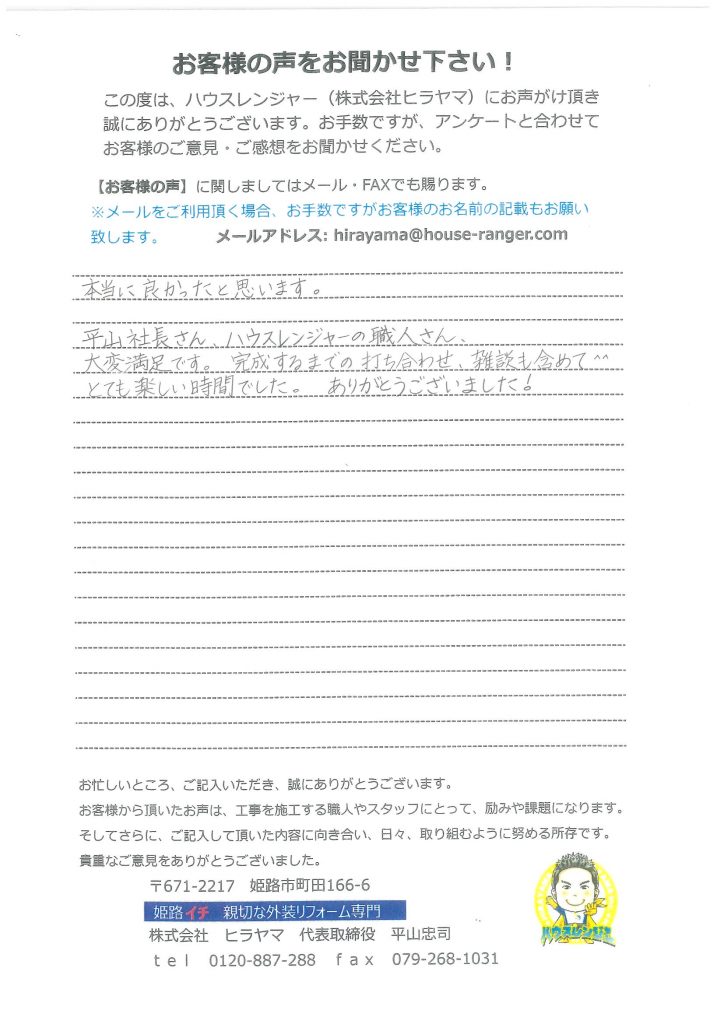 お客様の声をお聞かせ下さい！
この度は、ハウスレンジャー（株式会社ヒラヤマ）にお声がけ頂き
誠にありがとうございます。お手数ですが、アンケートと合わせて
お客様のご意見・ご感想をお聞かせください。
【お客様の声】に関しましてはメール・FAXでも賜ります。
※メールをご利用頂く場合、お手数ですがお客様のお名前の記載もお願い
致します。 メールアドレス: hirayama@house-ranger.com
本当に良かったと思います。
平山社長さん、ハウスレンジャーの職人さん、
大変満足です。 完成するまでの打ち合わせ、雑談も含めて^^
とても楽しい時間でした。 ありがとうございました！
お忙しいところ、ご記入いただき、誠にありがとうございます。
お客様から頂いたお声は、工事を施工する職人やスタッフにとって、励みや課題になります。
そしてさらに、ご記入して頂いた内容に向き合い、日々、取り組むように努める所存です。
貴重なご意見をありがとうございました。
〒671-2217 姫路市町田166-6
姫路イチ 親切な外装リフォーム専門
株式会社 ヒラヤマ 代表取締役 平山忠司
ｔｅｌ 0120-887-288 ｆａｘ 079-268-1031
ハウスレンジャー